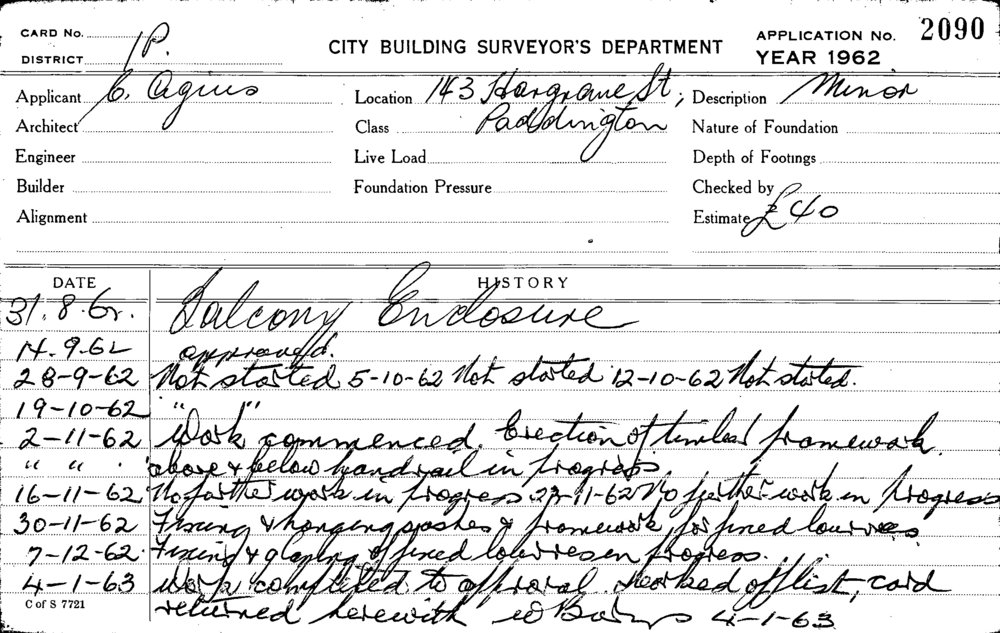 CARD No.
DISTRICT 1P.
CITY BUILDING SURVEYOR'S DEPARTMENT
APPLICATION No. 2090
YEAR 1962
Applicant C. Agius
Location 143 Hargrave St,
Description Minor
Architect
Class Paddington
Nature of Foundation
Engineer
Live Load
Depth of Footings
Builder
Foundation Pressure
Checked by
Alignment
Estimate £40
DATE HISTORY
31.8.62. Balcony Enclosure
14.9.62 approved.
28-9-62 Not started 5-10-62 Not started 12-10-62 Not started.
19-10-62 " "
2-11-62 Work commenced. Erection of timber framework
" " . above & below handrail in progress
16-11-62 No further work in progress 23-11-62 No further work in progress
30-11-62 Fixing & hanging sashes & framework for fixed louvres
7-12-62. Fixing & glazing of fixed louvres in progress.
4-1-63 Work completed to approval. Marked off list, card
returned herewith 4-1-63
C of S 7721